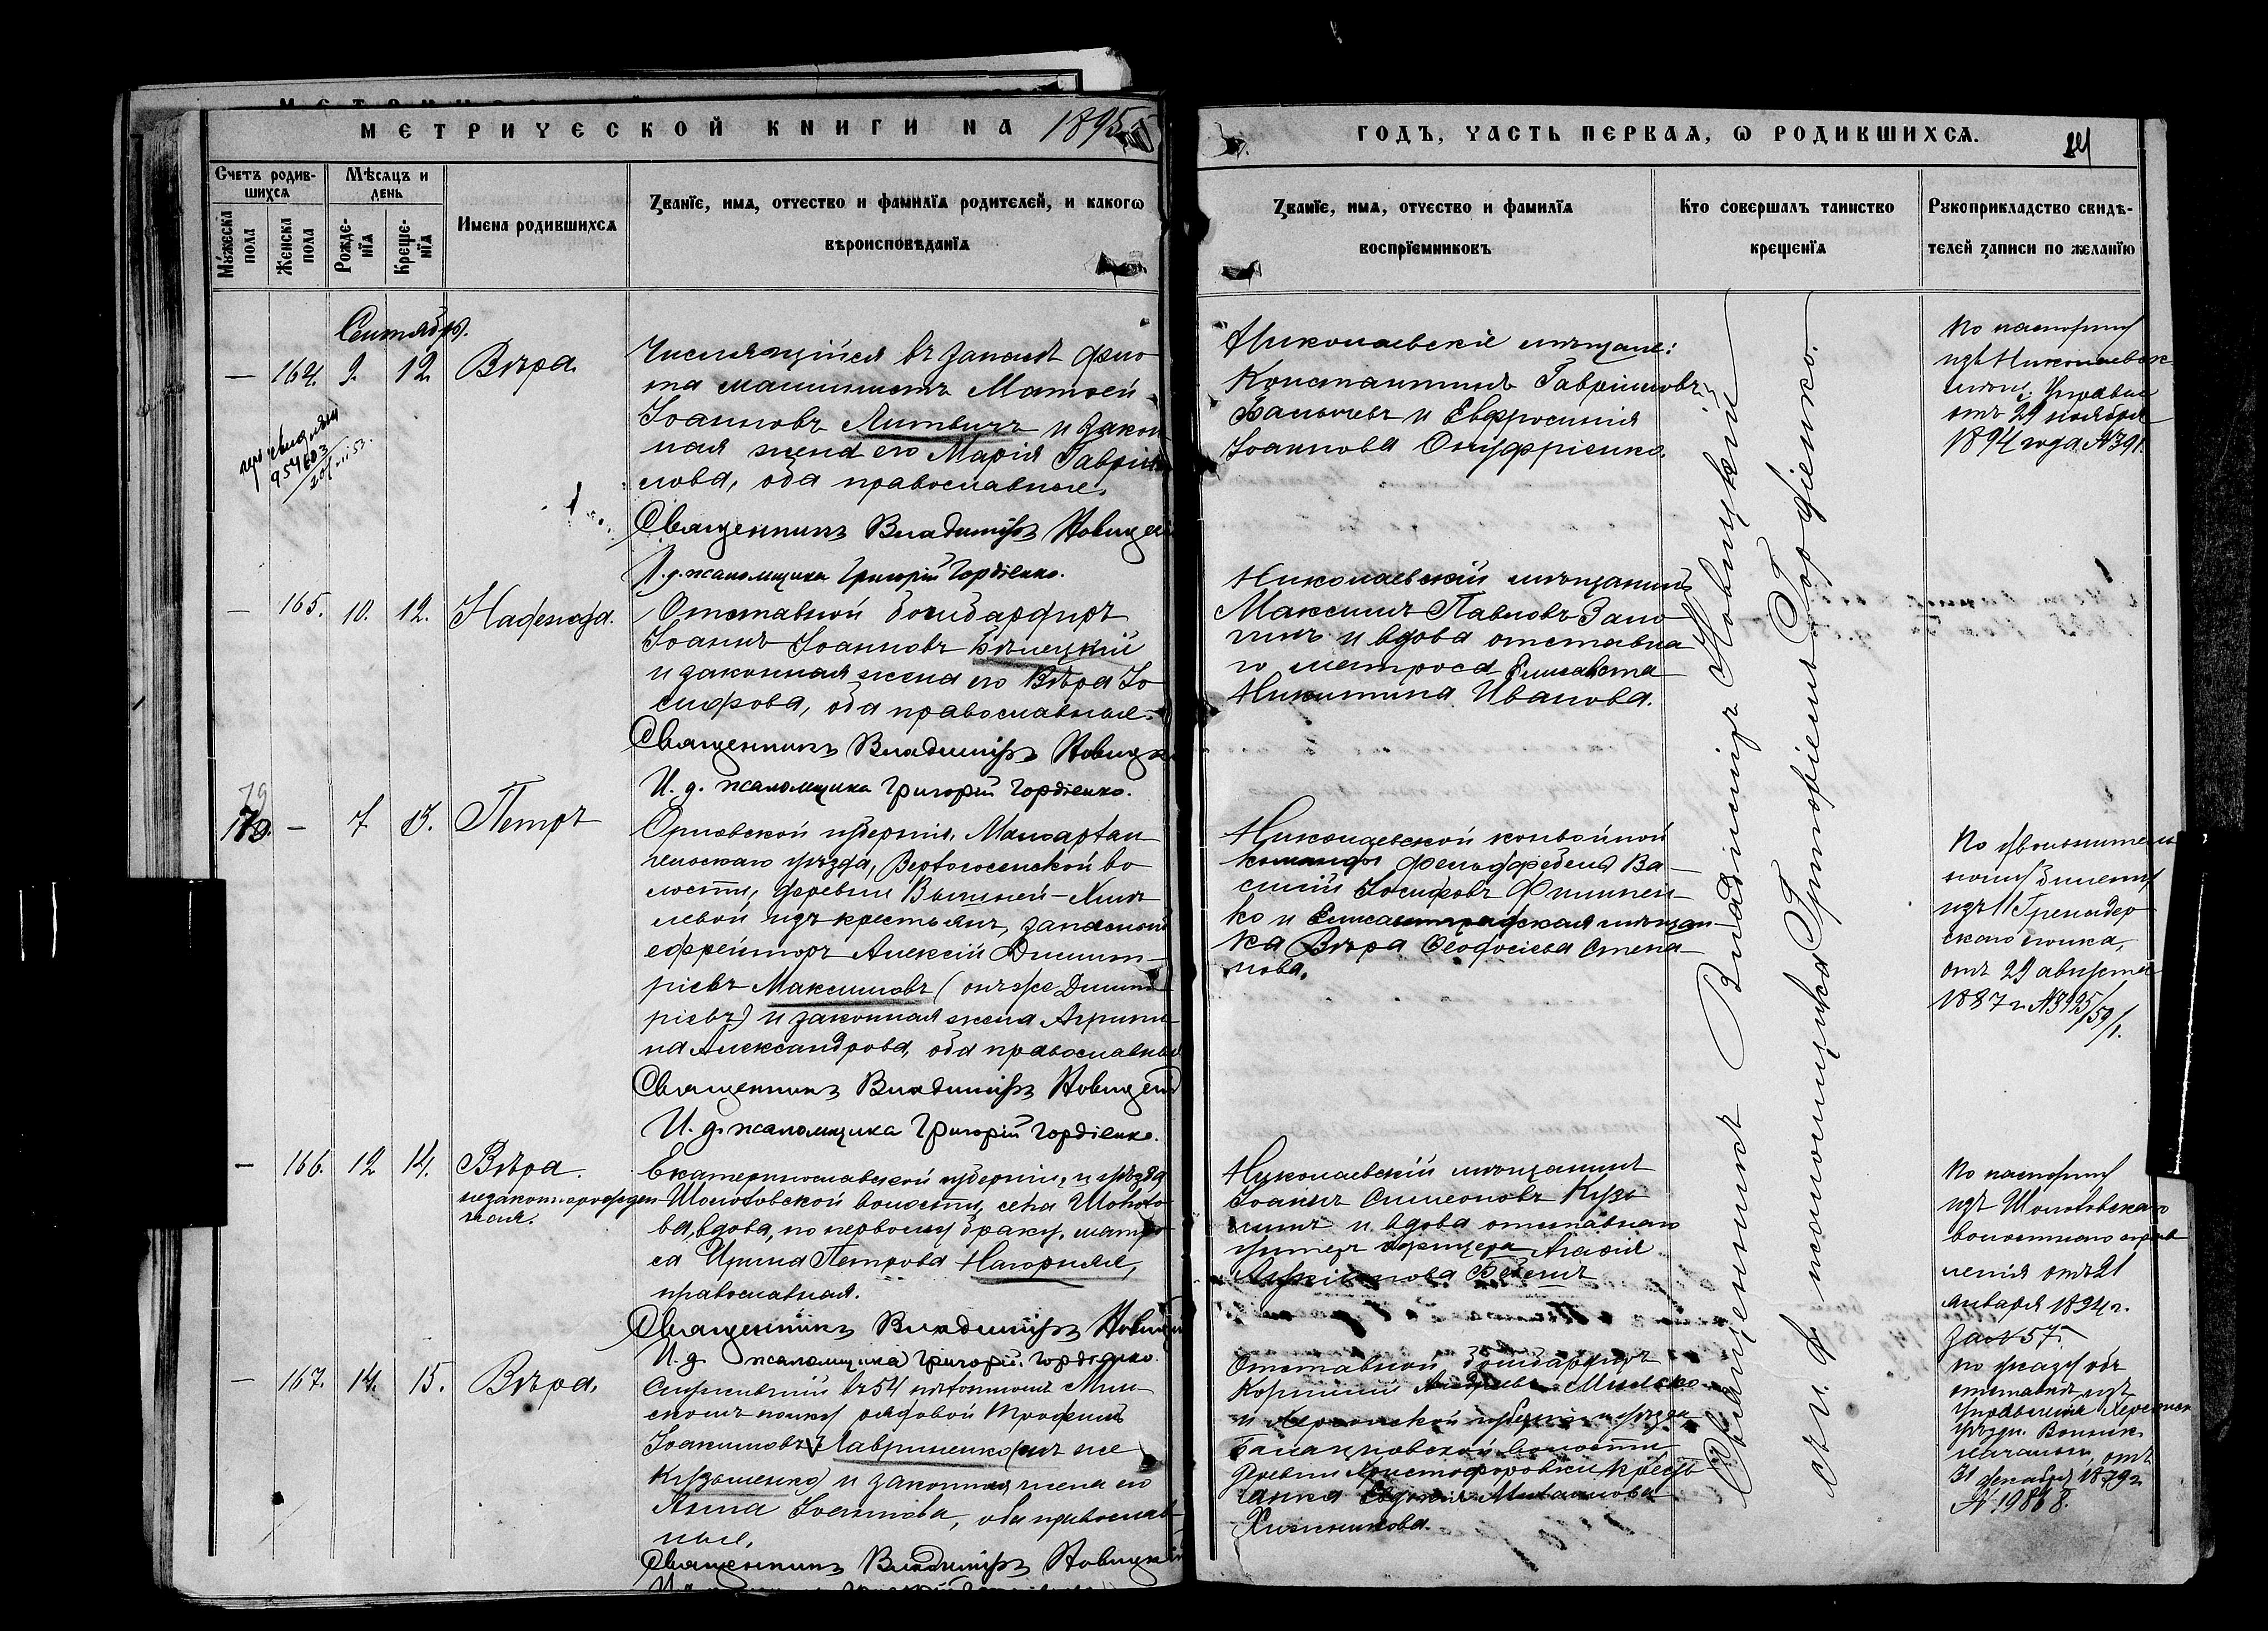 МЕТРИЧЕСКОЙ КНИГИ НА 1895
ГОДЪ, ЧАСТЬ ПЕРВАЯ, Ѡ РОДИВШИХСЯ.
Счетъ родившихся
Мужеска пола
Женска пола
Мѣсяцъ и день
Рожденїя
Крещенїя
Имена родившихся
Званїе, имя, отчество и фамилїя родителей, и какогѡ
вѣроисповѣданїя
Званїе, имя, отчество и фамилїя
воспрїемниковъ
Кто совершалъ таинство
крещенїя
Рукоприкладство свидѣ-
телей записи по желанїю
Сентябрь.
— 164. 9. 12. Вѣра.
Числящійся въ запасѣ фло
та машинистъ Матѳей
Іоанновъ Литвинъ и закон
ная жена его Марія Гавріи
лова, оба православные.
Священникъ Владиміръ Новицкій
И. д. псаломщика Григорій Гордіенко.
Николаевскіе мѣщане:
Константинъ Гавріиловъ
и Евфросинія
Іоаннова Онуфріенко.
По паспорту
изъ Николаевск.
мѣщ. Управы
отъ 29 ноября
1894 года №391.
— 165. 10. 12. Надежда.
Отставной бомбардиръ
Іоаннъ Іоанновъ Бѣлецкій
и законная жена его Вѣра Іо
сифова, оба православные.
Священникъ Владиміръ Новицкій
И. д. псаломщика Григорій Гордіенко.
Николаевскій мѣщанинъ
Максимъ Павловъ
и вдова отставна
го матроса Елисавета
Никитина Иванова.
— 7. 13. Петръ
Орловской губерніи, Малоархан
гельскаго уѣзда, волости, деревни
изъ крестьянъ, запасный
ефрейторъ Алексій Димит-
ріевъ Максимовъ (онъ же Димит
ріевъ) и законная жена Агрипи
на Александрова, оба православные
Священникъ Владиміръ Новицкій
И. д. псаломщика Григорій Гордіенко.
Николаевской конвойной
команды фельдфебель Ва-
силій Іосифовъ Филипен-
ко и Елисаветградская мѣщан-
ка Вѣра Ѳеодосіева Степа-
нова.
По увольнитель
ному билету
изъ 11 Гренадер
скаго полка,
отъ 29 августа
1887 г.
— 166. 12 14. Вѣра.
незаконнорожден
ная.
Екатеринославской губерніи, и уѣзда
волости, села
вдова, по первому браку, матро
са Ирина Петрова Нагорная,
православная.
Священникъ Владиміръ Новицкій
И. д. псаломщика Григорій Гордіенко.
Николаевскій мѣщанинъ
Іоаннъ Симеоновъ Кузь
минъ и вдова отставнаго
унтеръ офицера Агаѳія
По паспорту
изъ
волостного прав
ленія отъ 21
января 1894 г.
за № 57.
— 167. 14. 15. Вѣра.
Служившій въ 54 пѣхотномъ Мин-
скомъ полку рядовой Трофимъ
Іоакимовъ Лавриненко (онъ же
Кузьменко) и законная жена его
Анна Іоаннова, оба православ-
ные.
Священникъ Владиміръ Новицкій
Отставной бомбардиръ
и Херсонской губерніи и уѣзда
Балацковской волости,
деревни Христофоровки крестьянка
Хижнякова.
По указу объ
отставкѣ изъ
Управленія Херсонск
уѣздн. Воинск.
начальн., отъ
31 декабря 1879 г.
№ 19868.
Священникъ Владиміръ Новицкій
съ и. д. псаломщика Гордіенко.